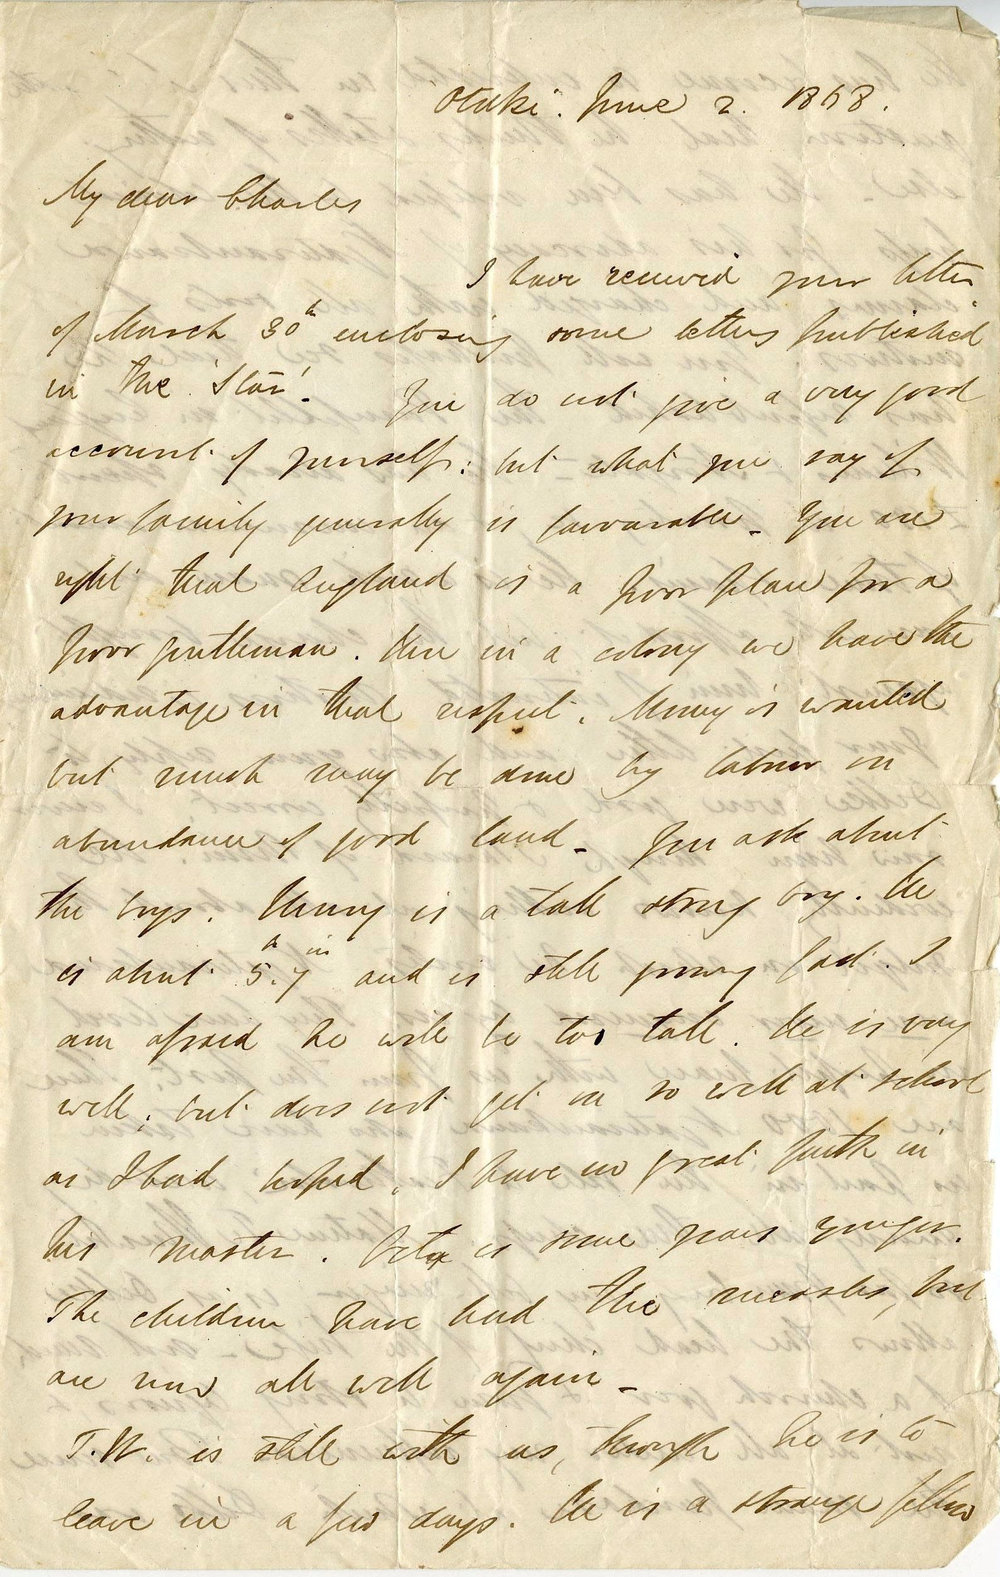 Otaki. June 2. 1868.
My dear Charles
I have received your letter
of March 30th enclosing some letters published
in the 'Star'. You do not give a very good
account of yourself: but what you say of
your family generally is favourable - You are
right that England is a poor place for a
poor gentleman. Here in a colony we have the
advantage in that respect. Money is wanted
but much may be done by labour on
abundance of good land - You ask about
the boys. Henry is a tall strong boy. He
is about 5.ft 7in and is still growing fast. I
am afraid he will be too tall. He is very
well; but does not get on so well at school
as I had hoped. I have no great faith in
his master. is some years younger.
The children have had the measles, but
are now all well again -
T.W. is still with us, though he is to
leave in a few days. He is a strange fellow